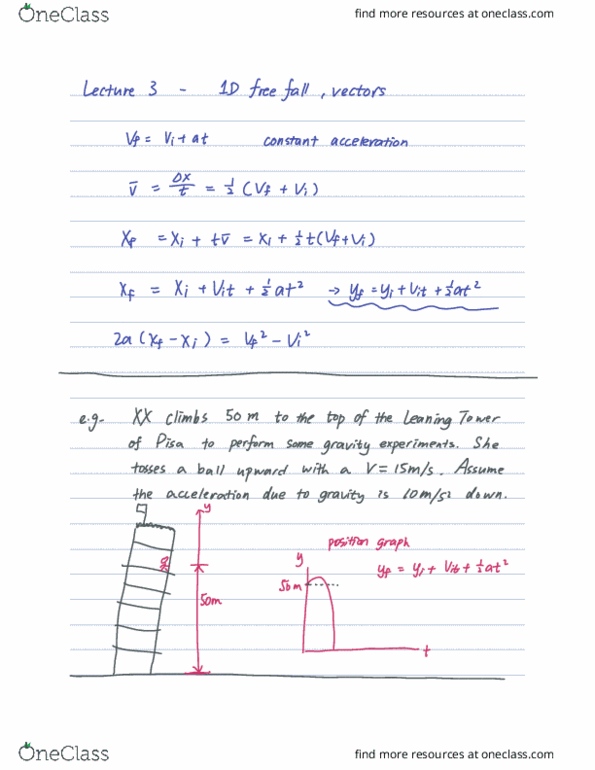 OneClass
find more resources at oneclass.com
Lecture 3 - 1D free fall, vectors
Vf = Vi + at constant acceleration
v̅ = Δx/t = ½ (Vf + Vi)
Xf = Xi + tv̅ = Xi + ½t(Vf+Vi)
Xf = Xi + Vit + ½at² → yf = yi + Vit + ½at²
2a (Xf - Xi) = Vf² - Vi²
e.g- XX climbs 50 m to the top of the Leaning Tower
of Pisa to perform some gravity experiments. She
tosses a ball upward with a V = 15m/s. Assume
the acceleration due to gravity is 10m/s² down.
y
position graph
y
yf = yi + Vit + ½at²
50m
50m
t
OneClass
find more resources at oneclass.com